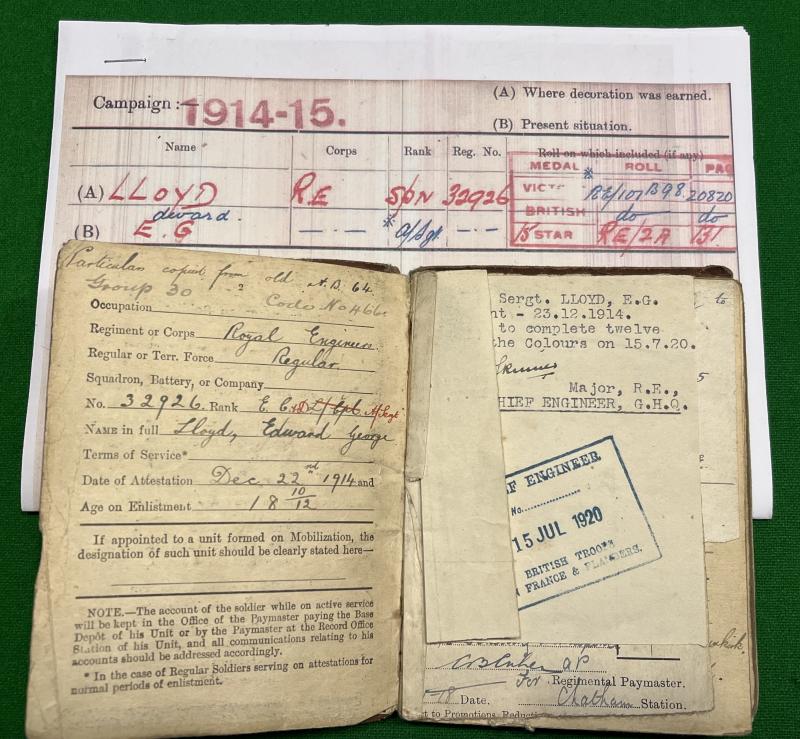 Campaign :— 1914-15.
(A) Where decoration was earned.
(B) Present situation.
Name Corps Rank Reg. No. Roll on which included (if any)
MEDAL ROLL PAG
(A) LLOYD R.E SPN 32926 VICT RE/101B98 20820
dward. BRITISH do do
(B) E. G — . — A/Sgt — . — 15 STAR RE/2A
Particulars copied from old A.B. 64.
Group 30 Code No 466.
Occupation
Regiment or Corps Royal Engineer
Regular or Terr. Force Regular.
Squadron, Battery, or Company
No. 32926. Rank A/Sergt
NAME in full Lloyd, Edward George
Terms of Service*
Date of Attestation Dec. 22nd 1914 and
Age on Enlistment 18 10/12
If appointed to a unit formed on Mobilization, the
designation of such unit should be clearly stated here—
NOTE.—The account of the soldier while on active service
will be kept in the Office of the Paymaster paying the Base
Depôt of his Unit or by the Paymaster at the Record Office
Station of his Unit, and all communications relating to his
accounts should be addressed accordingly.
* In the case of Regular Soldiers serving on attestations for
normal periods of enlistment.
Sergt. LLOYD, E.G.
nt - 23.12.1914.
to complete twelve
the Colours on 15.7.20.
Major, R.E.,
HIEF ENGINEER, G.H.Q.
EF ENGINEER
No.
15 JUL 1920
BRITISH TROOPS
N FRANCE & FLANDERS.
For Regimental Paymaster.
Date. Chatham Station.
t to Promotions, Reduct